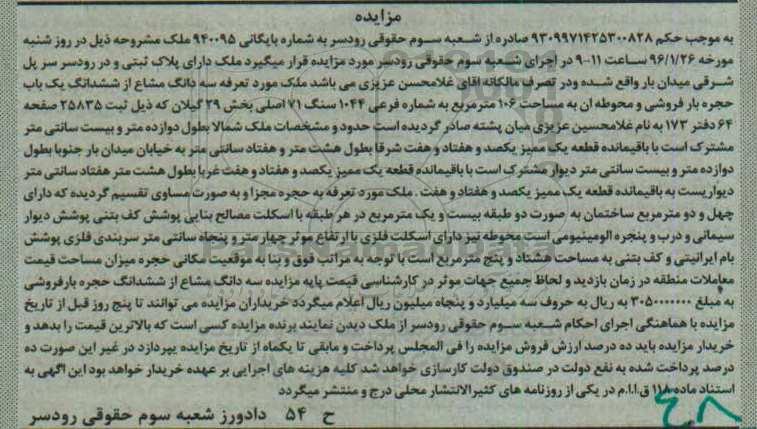 مزایده
به موجب حکم ۹۳۰۹۹۷۱۴۲۵۳۰۰۸۲۸ صادره از شعبه سوم حقوقی رودسر به شماره بایگانی ۹۴۰۰۹۵ ملک مشروحه ذیل در روز شنبه
مورخه ۹۶/۱/۲۶ ساعت ۱۱-۹ در اجرای شعبه سوم حقوقی رودسر مورد مزایده قرار میگیرد ملک دارای پلاک ثبتی و در رودسر سر پل
شرقی میدان بار واقع شده ودر تصرف مالکانه اقای غلامحسن عزیزی می باشد ملک مورد تعرفه سه دانگ مشاع از ششدانگ یک باب
حجره بار فروشی و محوطه ان به مساحت ۱۰۶ مترمربع به شماره فرعی ۱۰۴۴ سنگ ۷۱ اصلی بخش ۲۹ گیلان که ذیل ثبت ۲۵۸۳۵ صفحه
۶۴ دفتر ۱۷۳ به نام غلامحسین عزیزی میان پشته صادر گردیده است حدود و مشخصات ملک شمالا بطول دوازده متر و بیست سانتی متر
مشترک است با باقیمانده قطعه یک ممیز یکصد و هفتاد و هفت شرقا بطول هشت متر و هفتاد سانتی متر به خیابان میدان بار جنوبا بطول
دوازده متر و بیست سانتی متر دیوار مشترک است با باقیمانده قطعه یک ممیز یکصد و هفتاد و هفت غربا بطول هشت متر هفتاد سانتی متر
دیواریست به باقیمانده قطعه یک ممیز یکصد و هفتاد و هفت . ملک مورد تعرفه به حجره مجزا و به صورت مساوی تقسیم گردیده که دارای
چهل و دو مترمربع ساختمان به صورت دو طبقه بیست و یک مترمربع در هر طبقه با اسکلت مصالح بنایی پوشش کف بتنی پوشش دیوار
سیمانی و درب و پنجره الومینیومی است محوطه نیز دارای اسکلت فلزی با ارتفاع موثر چهار متر و پنجاه سانتی متر سربندی فلزی پوشش
بام ایرانیتی و کف بتنی به مساحت هشتاد و پنج مترمربع است با توجه به مراتب فوق و بنا به موقعیت مکانی حجره میزان مساحت قیمت
معاملات منطقه در زمان بازدید و لحاظ جمیع جهات موثر در کارشناسی قیمت پایه مزایده سه دانگ مشاع از ششدانگ حجره بارفروشی
به مبلغ ۳۰۵۰۰۰۰۰۰۰ به ریال به حروف سه میلیارد و پنجاه میلیون ریال اعلام میگردد خریداران مزایده می توانند تا پنج روز قبل از تاریخ
مزایده با هماهنگی اجرای احکام شعبه سوم حقوقی رودسر از ملک دیدن نمایند برنده مزایده کسی است که بالاترین قیمت را بدهد و
خریدار مزایده باید ده درصد ارزش فروش مزایده را فی المجلس پرداخت و مابقی تا یکماه از تاریخ مزایده بپردازد در غیر این صورت ده
درصد پرداخت شده به نفع دولت در صندوق دولت کارسازی خواهد شد کلیه هزینه های اجرایی بر عهده خریدار خواهد بود این اگهی به
استناد ماده ۱۱۸ ق.ا.ا.م در یکی از روزنامه های کثیرالانتشار محلی درج و منتشر میگردد
ح ۵۴ دادورز شعبه سوم حقوقی رودسر